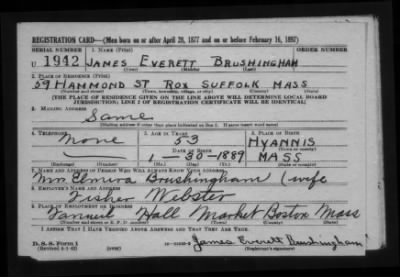 REGISTRATION CARD—(Men born on or after April 28, 1877 and on or before February 16, 1897)
SERIAL NUMBER 1. NAME (Print) ORDER NUMBER
U 1942 JAMES EVERETT BRUSHINGHAM
(First) (Middle) (Last)
2. PLACE OF RESIDENCE (Print)
59 HAMMOND ST ROX SUFFOLK MASS
(Number and street) (Town, township, village, or city) (County) (State)
[THE PLACE OF RESIDENCE GIVEN ON THE LINE ABOVE WILL DETERMINE LOCAL BOARD
JURISDICTION; LINE 2 OF REGISTRATION CERTIFICATE WILL BE IDENTICAL]
3. MAILING ADDRESS
Same
[Mailing address if other than place indicated on line 2. If same insert word same]
4. TELEPHONE 5. AGE IN YEARS 6. PLACE OF BIRTH
None 53 HYANNIS
DATE OF BIRTH (Town or county)
1 - 30 - 1889 MASS
(Exchange) (Number) (Mo.) (Day) (Yr.) (State or country)
7. NAME AND ADDRESS OF PERSON WHO WILL ALWAYS KNOW YOUR ADDRESS
Mrs Elmira Brushingham (wife
8. EMPLOYER'S NAME AND ADDRESS
Fisher Webster
9. PLACE OF EMPLOYMENT OR BUSINESS
Fanueil Hall Market Boston Mass
(Number and street or R. F. D. number) (Town) (County) (State)
I AFFIRM THAT I HAVE VERIFIED ABOVE ANSWERS AND THAT THEY ARE TRUE.
D. S. S. Form 1
(Revised 4-1-42) (over) James Everett Brushingham
(Registrant's signature)